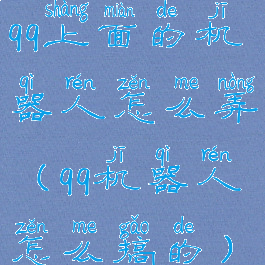 shàng miàn de jī
qq上面的机
qì rén zěn me nòng
器人怎么弄
jī qì rén
(qq机器人
zěn me gǎo de
怎么搞的)